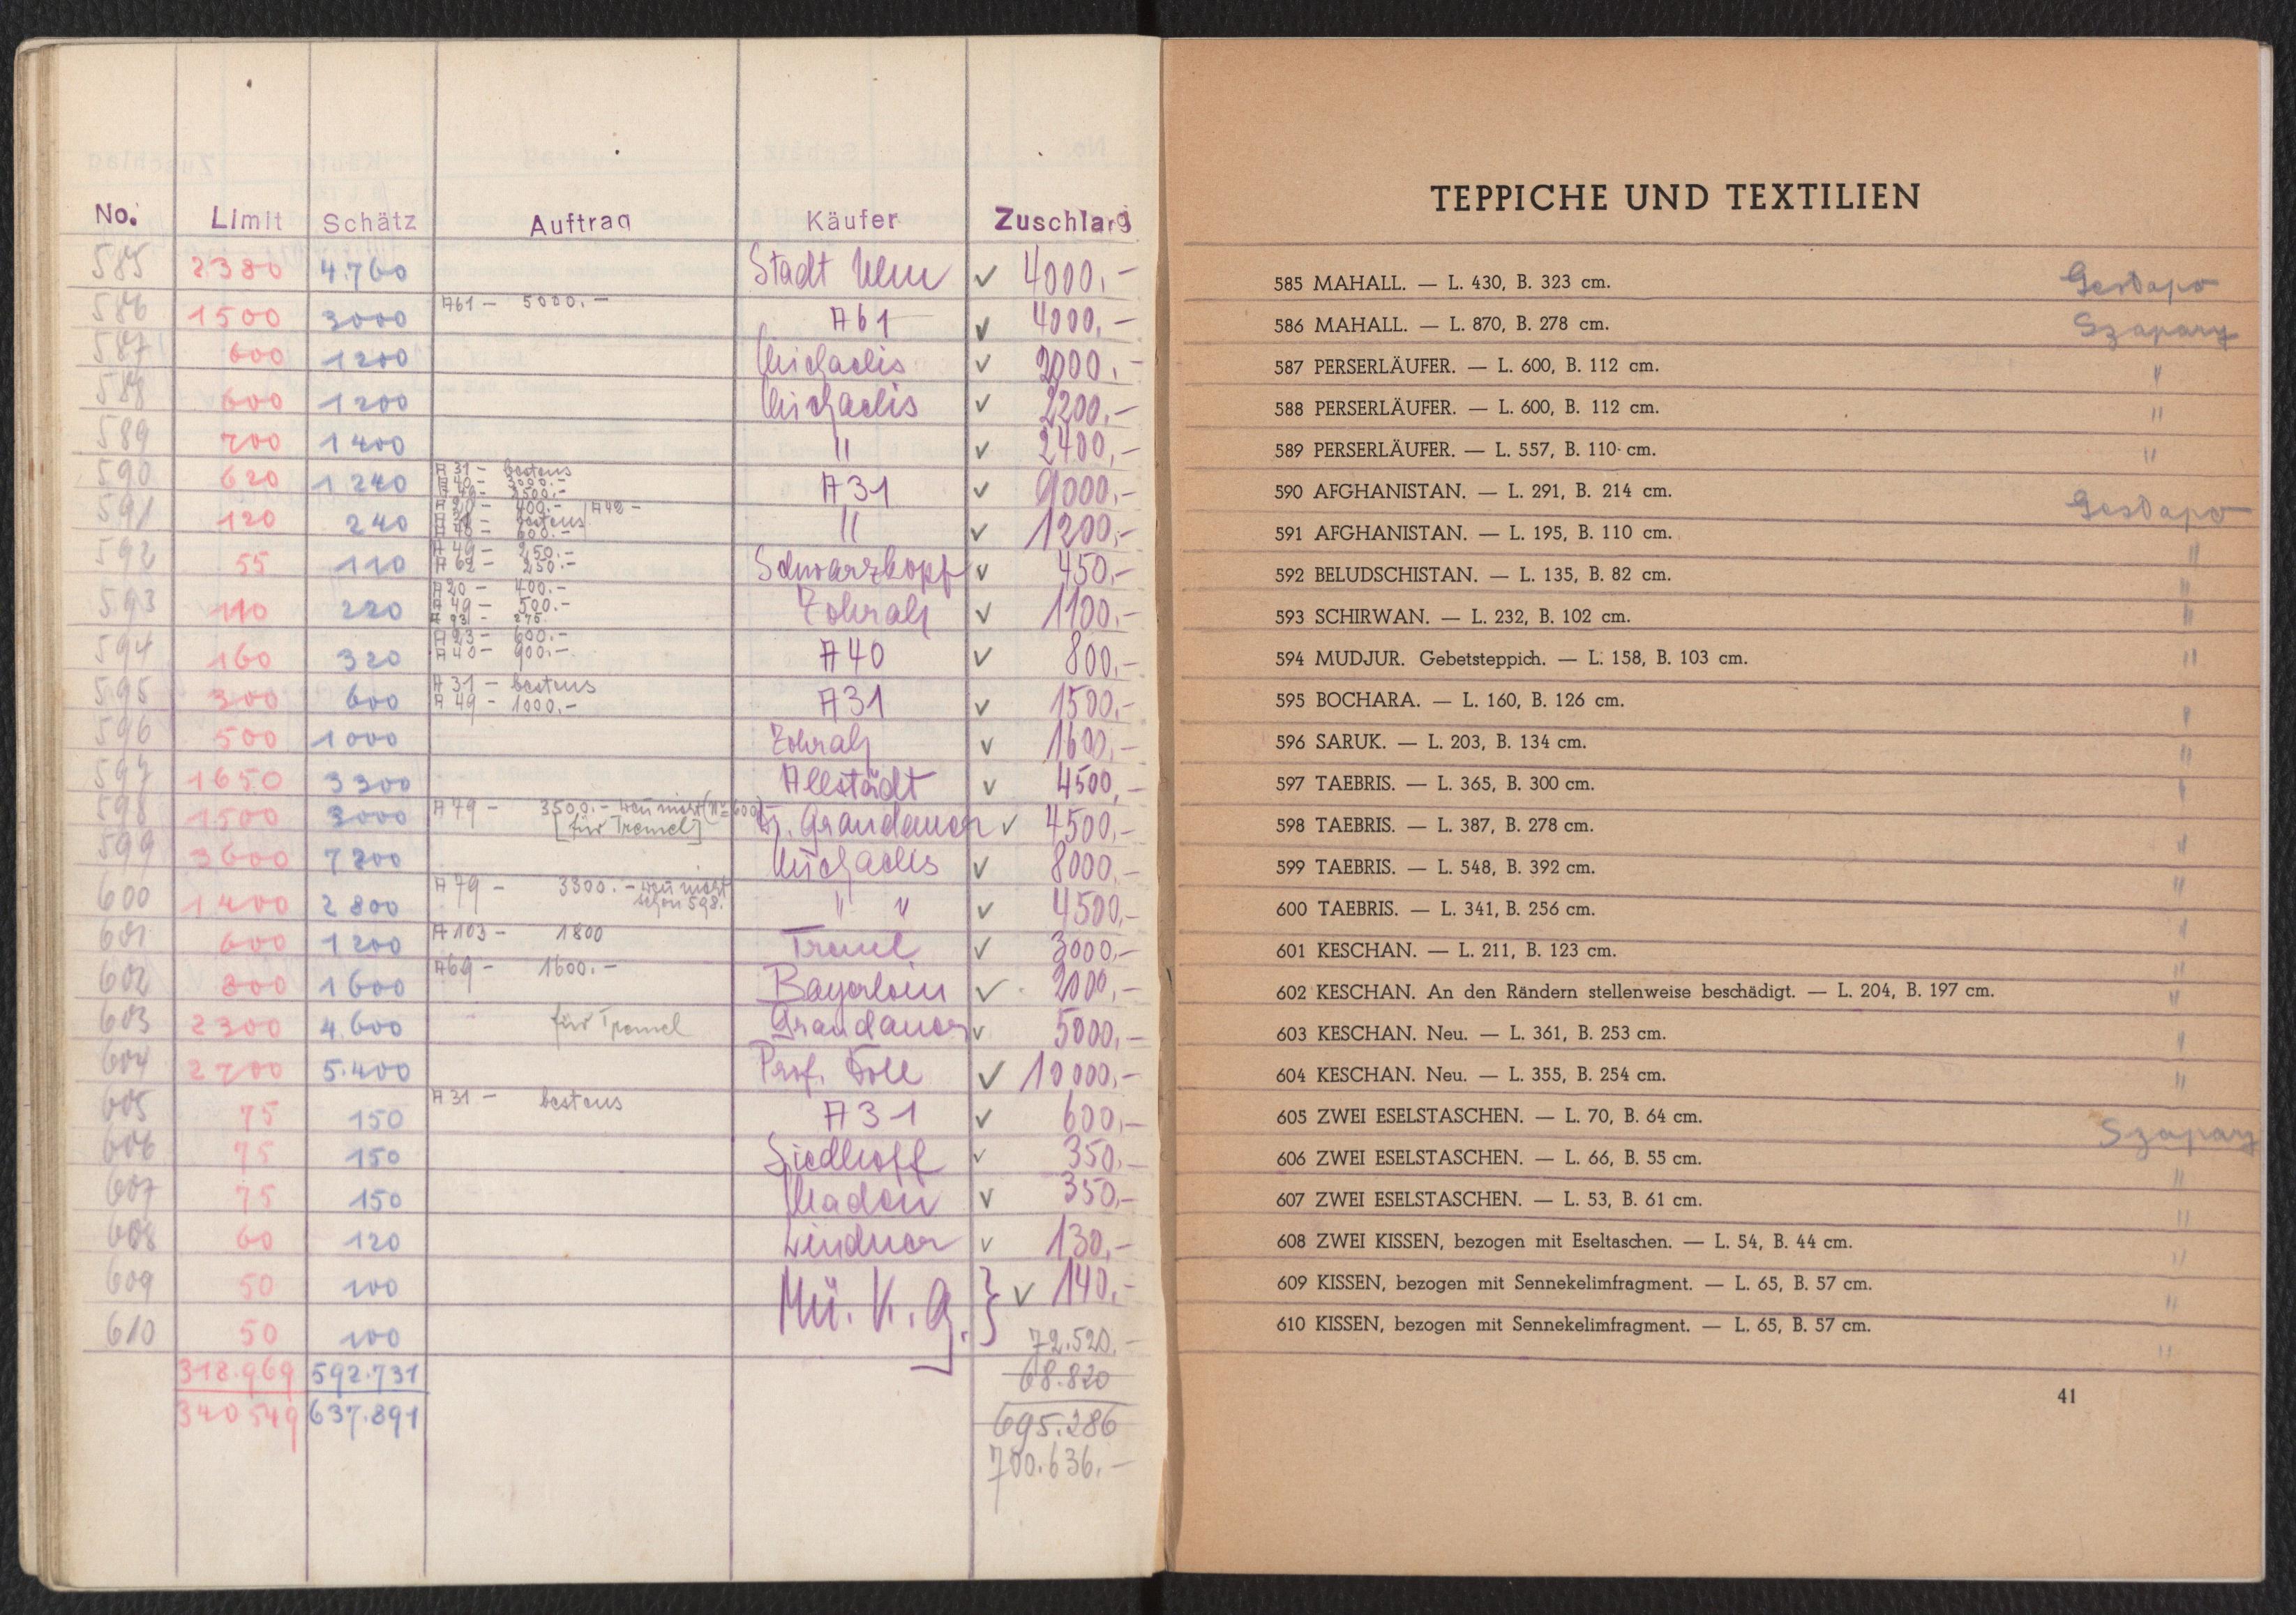 No. Limit Schätz Auftrag Käufer Zuschlag
585 2380 4.760 Stadt Ulm ✓ 4000,-
586 1500 3000 A61 - 5000.- A61 ✓ 4000,-
587 600 1200 Michaelis ✓ 2000,-
588 600 1200 Michaelis ✓ 2200,-
589 700 1400 " ✓ 2400,-
590 620 1240 A31 - bestens A31 ✓ 9000,-
A40 - 3000.-
A49 - 2500.-
591 120 240 A20 - 400.- A42 - " ✓ 1200,-
A31 - bestens
A40 - 600.-
592 55 110 A49 - 250.- Schwarzkopf ✓ 450,-
A62 - 250.-
593 110 220 A20 - 400.- Zohralj ✓ 1100,-
A49 - 500.-
A93 - 275.
594 160 320 A23 - 600.- A40 ✓ 800,-
A40 - 900.-
595 300 600 A31 - bestens A31 ✓ 1500,-
A49 - 1000.-
596 500 1000 Zohralj ✓ 1600,-
597 1650 3300 Allstädt ✓ 4500,-
598 1500 3000 A79 - 3500.- wen nicht (No 600) Grandauer ✓ 4500,-
[für Tremel]
599 3600 7200 Michaelis ✓ 8000,-
600 1400 2800 A79 - 3300.- wen nicht " " ✓ 4500,-
schon 598.
601 600 1200 A103 - 1800 Tremel ✓ 3000,-
602 800 1600 A69 - 1600.- Bayerlein ✓ 2000,-
603 2300 4.600 für Tremel Grandauer ✓ 5000,-
604 2700 5.400 Prof. ✓ 10000,-
605 75 150 A31 - bestens A31 ✓ 600,-
606 75 150 Siedhoff ✓ 350,-
607 75 150 ✓ 350,-
608 60 120 Lindner ✓ 130,-
609 50 100 Mü. K. G. } ✓ 140,-
610 50 100
72.520.-
318.969 592.731 68.820
340549 637.891 695.286
700.636.-
TEPPICHE UND TEXTILIEN
585 MAHALL. — L. 430, B. 323 cm. Gestapo
586 MAHALL. — L. 870, B. 278 cm. Szapary
587 PERSERLÄUFER. — L. 600, B. 112 cm. "
588 PERSERLÄUFER. — L. 600, B. 112 cm. "
589 PERSERLÄUFER. — L. 557, B. 110 cm. "
590 AFGHANISTAN. — L. 291, B. 214 cm. Gestapo
591 AFGHANISTAN. — L. 195, B. 110 cm. "
592 BELUDSCHISTAN. — L. 135, B. 82 cm. "
593 SCHIRWAN. — L. 232, B. 102 cm. "
594 MUDJUR. Gebetsteppich. — L. 158, B. 103 cm. "
595 BOCHARA. — L. 160, B. 126 cm. "
596 SARUK. — L. 203, B. 134 cm. "
597 TAEBRIS. — L. 365, B. 300 cm. "
598 TAEBRIS. — L. 387, B. 278 cm. "
599 TAEBRIS. — L. 548, B. 392 cm. "
600 TAEBRIS. — L. 341, B. 256 cm. "
601 KESCHAN. — L. 211, B. 123 cm. "
602 KESCHAN. An den Rändern stellenweise beschädigt. — L. 204, B. 197 cm. "
603 KESCHAN. Neu. — L. 361, B. 253 cm. "
604 KESCHAN. Neu. — L. 355, B. 254 cm. "
605 ZWEI ESELSTASCHEN. — L. 70, B. 64 cm. Szapary
606 ZWEI ESELSTASCHEN. — L. 66, B. 55 cm. "
607 ZWEI ESELSTASCHEN. — L. 53, B. 61 cm. "
608 ZWEI KISSEN, bezogen mit Eseltaschen. — L. 54, B. 44 cm. "
609 KISSEN, bezogen mit Sennekelimfragment. — L. 65, B. 57 cm. "
610 KISSEN, bezogen mit Sennekelimfragment. — L. 65, B. 57 cm. "
41